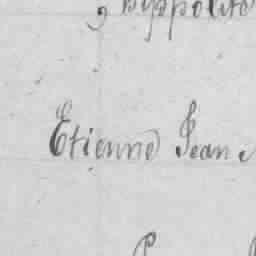 , hyppolite
Etienne Jean